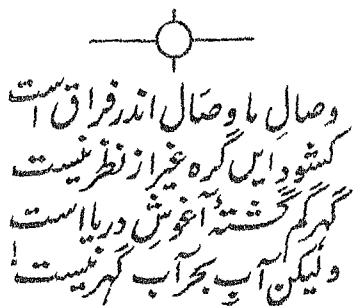 وصالِ ما وصال اندر فراق است
کشودِ ایں گرہ غیر از نظر نیست
گہر گم گشتۂ آغوشِ دریا است
ولیکن آبِ بحر آبِ گہر نیست!